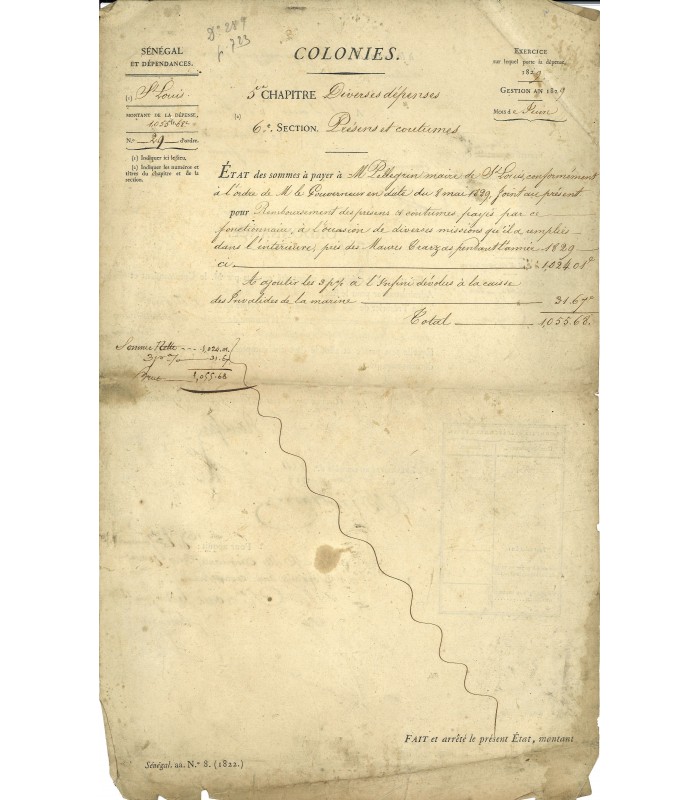 Dr 289
p. 723
SÉNÉGAL
ET DÉPENDANCES.
(1) St Louis
MONTANT DE LA DÉPENSE,
1055 68c
N.º 29 d'ordre.
(1) Indiquer ici le lieu.
(2) Indiquer les numéros et
titres du chapitre et de la
section.
COLONIES.
5e CHAPITRE Diverses dépenses
(2)
6e SECTION. Présens et coutumes
EXERCICE
sur lequel porte la dépense,
1829
GESTION AN 1829
Mois de Juin
ÉTAT des sommes à payer à M Pellegrin maire de St Louis, conformément
à l'ordre de M le Gouverneur en date du 8 mai 1829 Joint au présent
pour Remboursement des presens et coutumes payés par ce
fonctionnaire, à l'occasion de diverses missions qu'il a remplies
dans l'intérieure, près des Maures Trarzas pendant l'année 1829
ci 1,024.01c
A ajouter les 3 p% à l'Infini dévolus à la caisse
des Invalides de la marine 31.67c
Total 1,055.68.
Somme Nette 1,024.01
3 pr % 31.67
Brut 1,055.68
FAIT et arrêté le présent État, montant
Sénégal. N.º 8. (1822.)